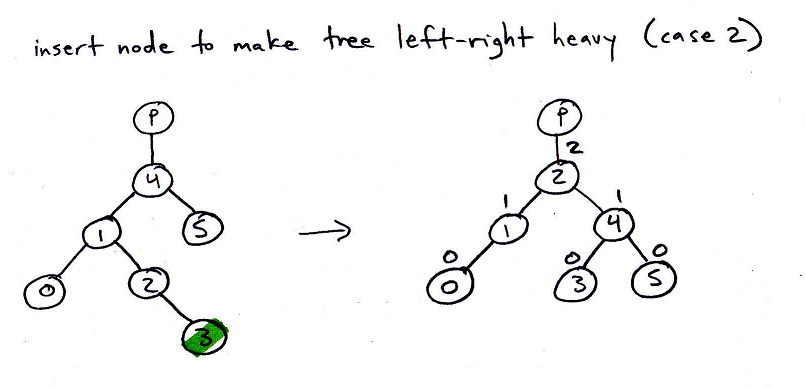 insert node to make tree left-right heavy (case 2)
P P
2
4 2
1 1
1 5 1 4
0 0 0
0 2 0 3 5
3